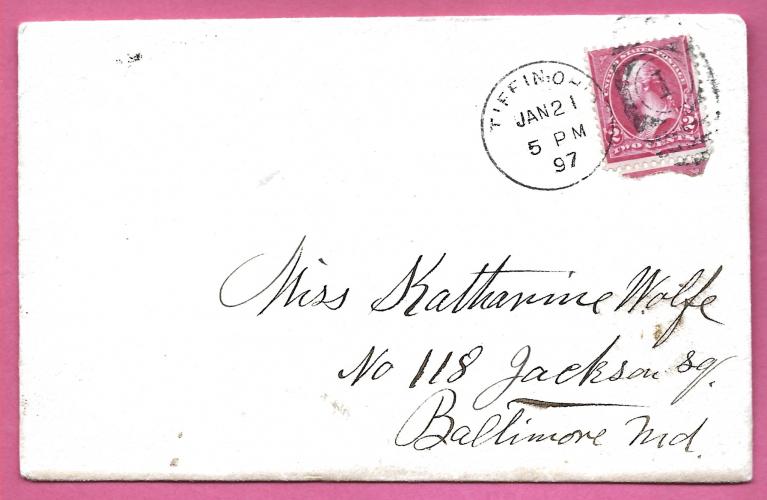 TIFFIN, O
JAN 21
5 PM
97
UNITED STATES POSTAGE
2 2
TWO CENTS
Miss Katharine Wolfe
No 118 Jackson sq.
Baltimore Md.